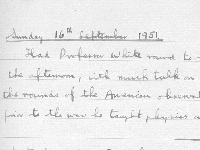 Sunday 16th September 1951
Had Professor White round to
the afternoon, with much talk on
the rounds of the American observat
prior to the war he taught physics